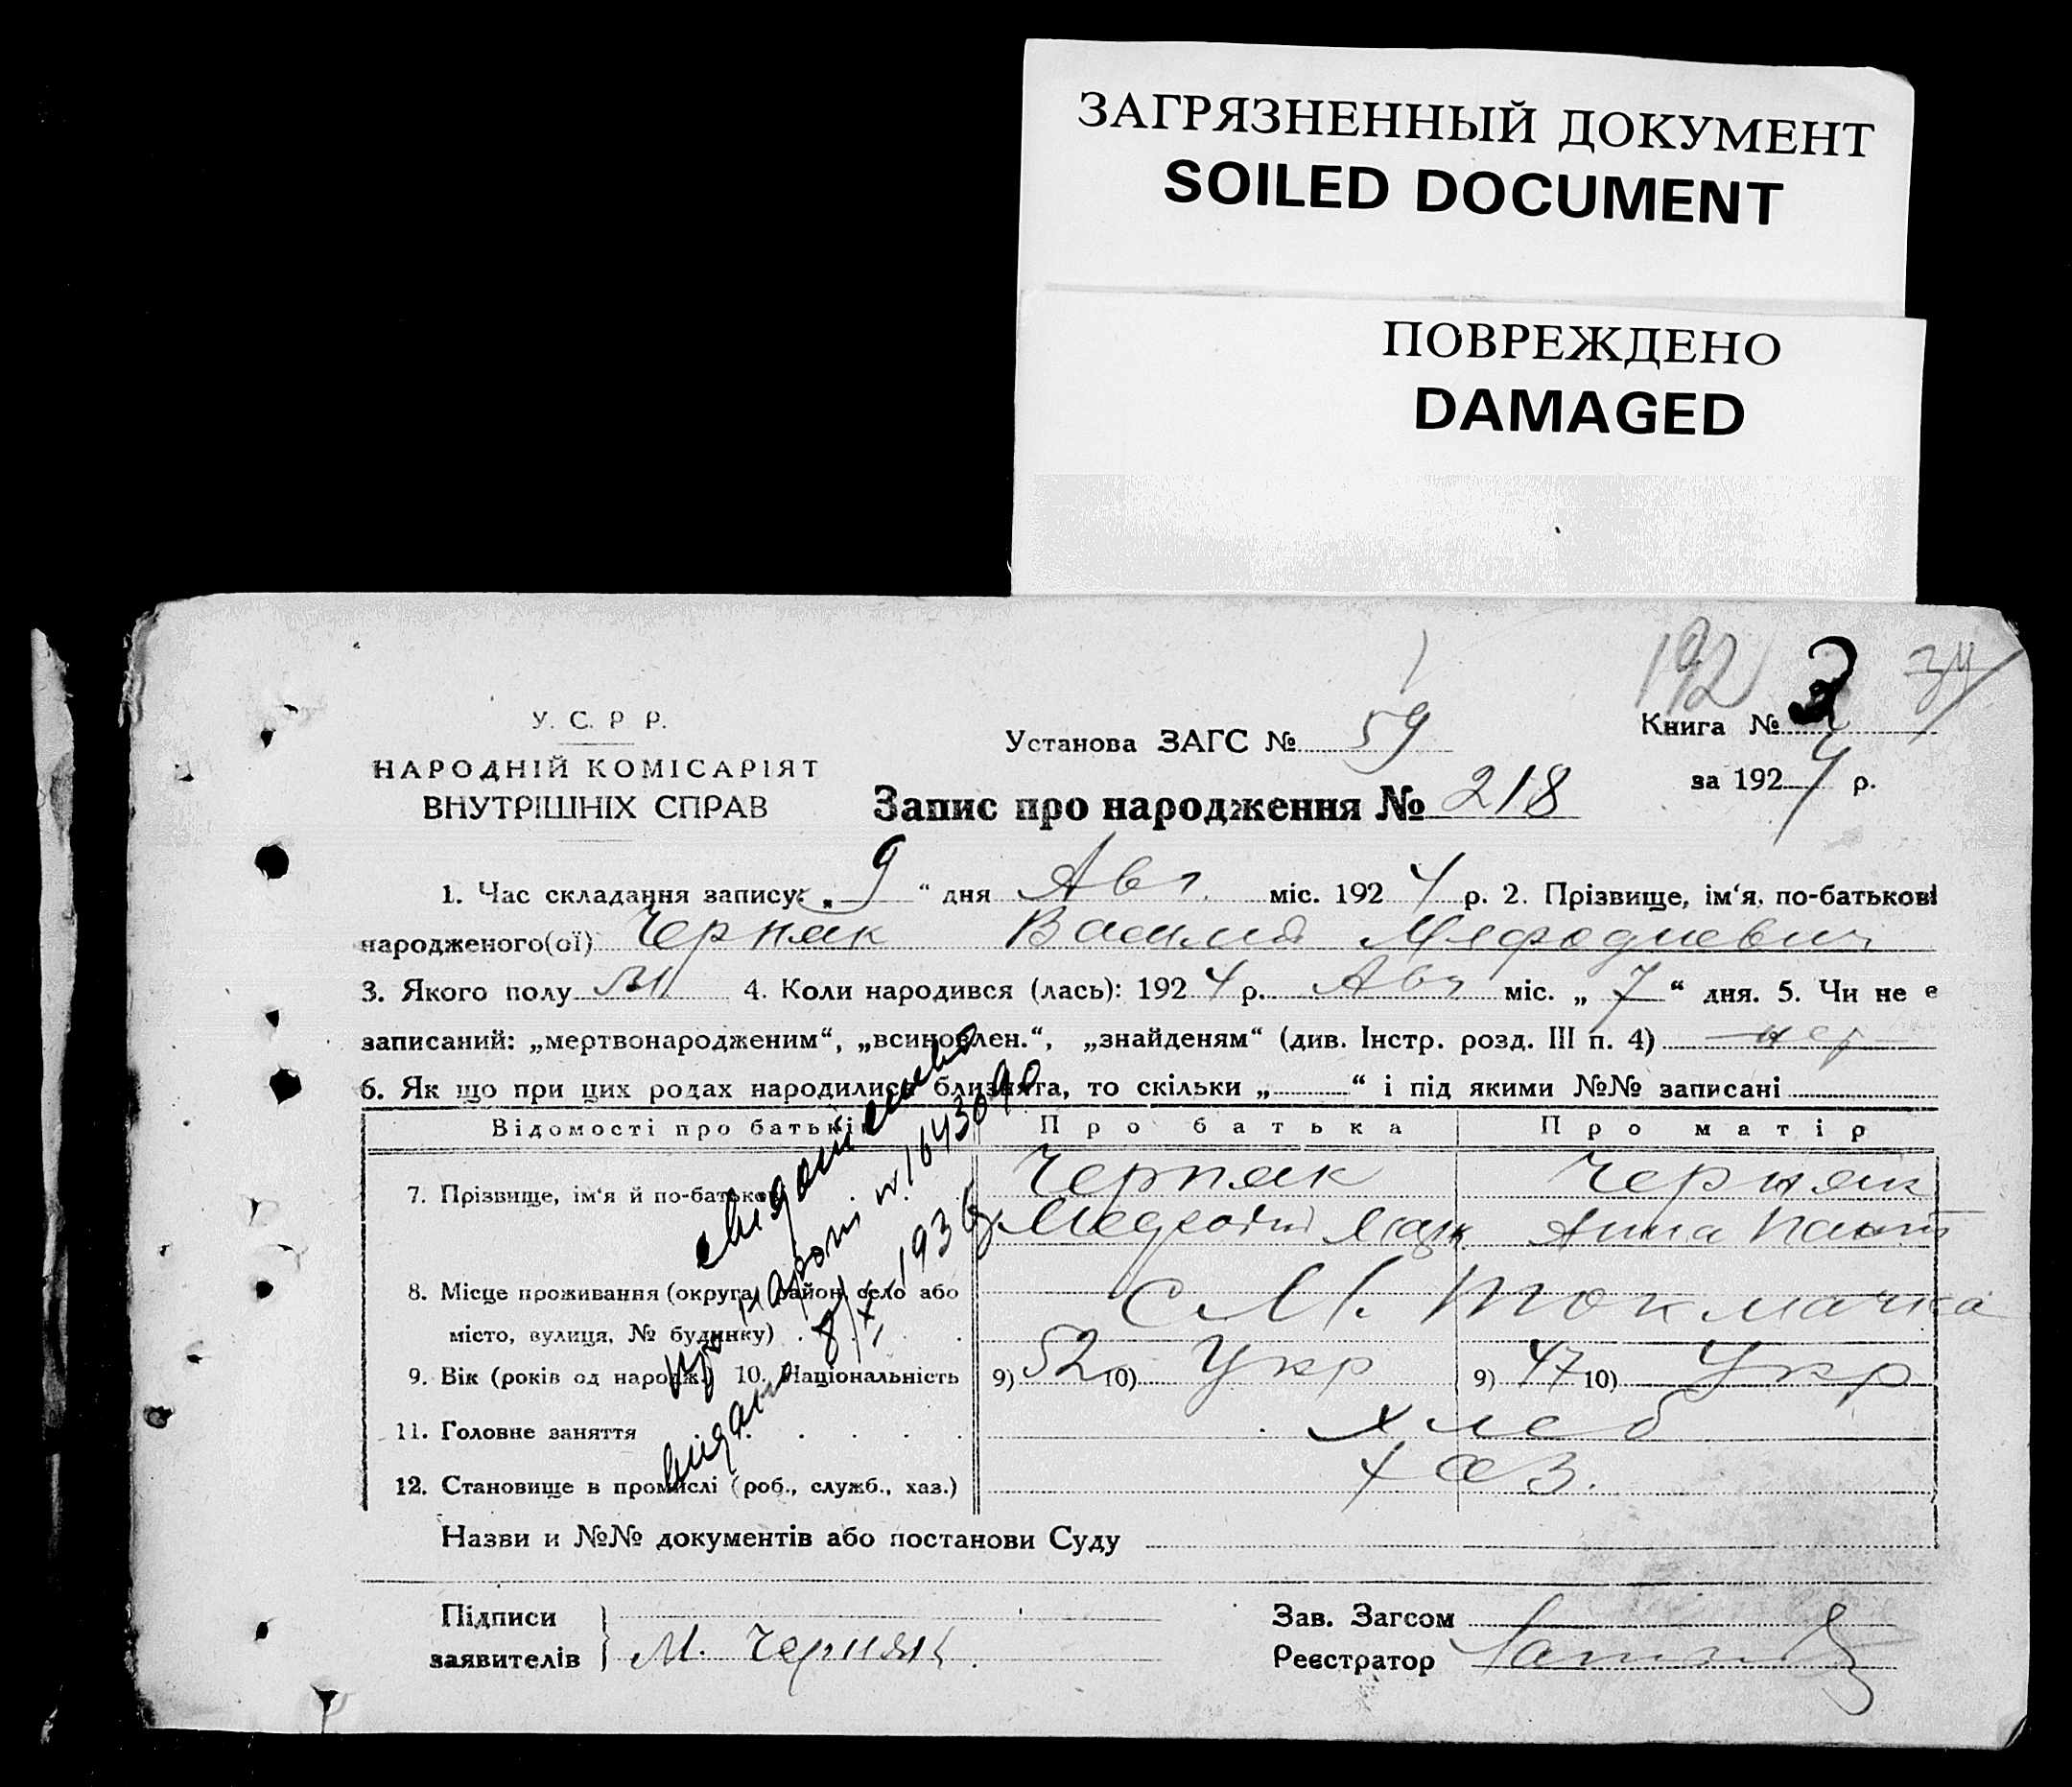 ЗАГРЯЗНЕННЫЙ ДОКУМЕНТ
SOILED DOCUMENT
ПОВРЕЖДЕНО
DAMAGED
192 34
У. С. Р Р.
НАРОДНІЙ КОМІСАРІЯТ
ВНУТРІШНІХ СПРАВ
Установа ЗАГС № 59
Книга № 3
за 1924 р.
Запис про народження № 218
1. Час складання запису: „ 9 “ дня Авг. міс. 1924 р. 2. Прізвище, ім‘я, по-батькові
народженого(ої) Черняк Василий Мефодиевич
3. Якого полу м. 4. Коли народився (лась): 1924 р. Авг міс. „ 7 “ дня. 5. Чи не є
записаний: „мертвонародженим“, „всиновлен.“, „знайденям“ (див. Інстр. розд. III п. 4) нет
6. Як що при цих родах народилися близнята, то скільки „ “ і під якими №№ записані
Відомості про батьків Про батька Про матір
7. Прізвище, ім‘я й по-батькові Черняк Черняк
Мефодий Анна
8. Місце проживання (округа, район, село або
місто, вулиця, № будинку) с М. Токмачка
9. Вік (років од народж.) 10. Національність 9) 52 10) Укр 9) 47 10) Укр
11. Головне заняття хлеб
12. Становище в промислі (роб., служб., хаз.) хаз.
Свидоцтво
про народж. № 1643090
видано 8/X 1936
Назви и №№ документів або постанови Суду
Підписи
заявителів М. Черняк.
Зав. Загсом
Реєстратор